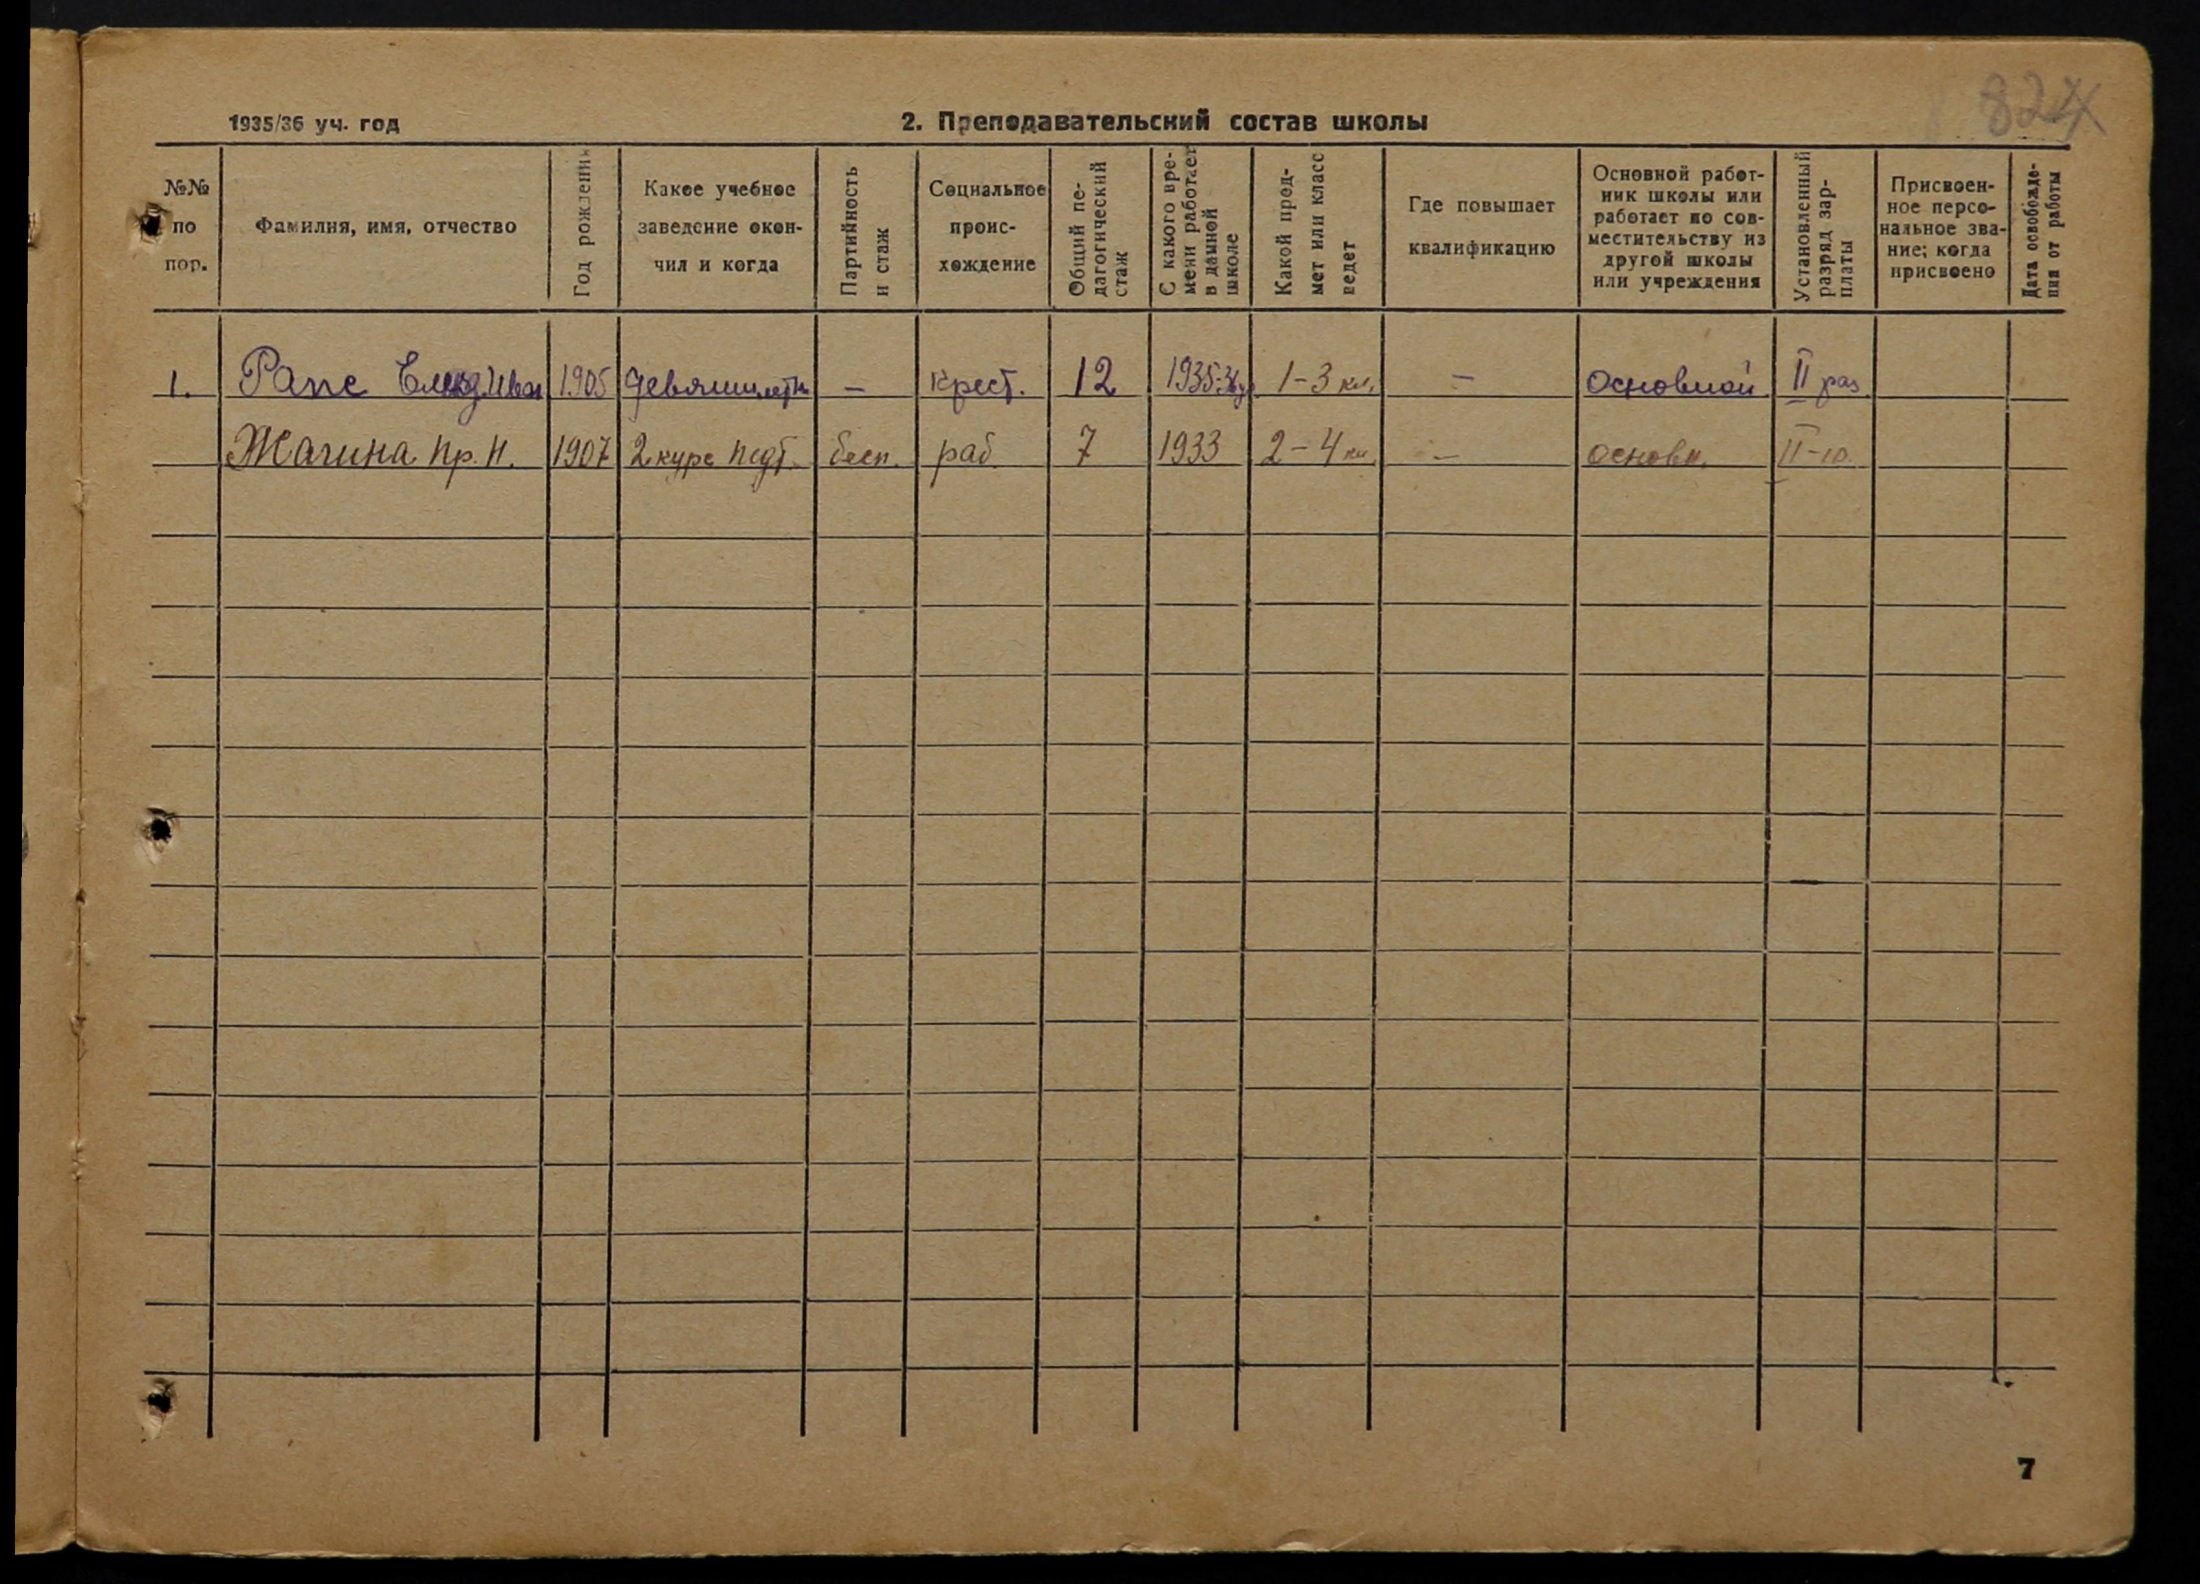 824
1935/36 уч. год
2. Преподавательский состав школы
№№
по
пор.
Фамилия, имя, отчество
Год рождения
Какое учебное
заведение окон-
чил и когда
Партийность
и стаж
Социальное
проис-
хождение
Общий пе-
дагогический
стаж
С какого вре-
мени работает
в данной
школе
Какой пред-
мет или класс
ведет
Где повышает
квалификацию
Основной работ-
ник школы или
работает по сов-
местительству из
другой школы
или учреждения
Установленный
разряд зар-
платы
Присвоен-
ное персо-
нальное зва-
ние; когда
присвоено
Дата освобожде-
ния от работы
1. Рапс 1905 девятилетк — крест. 12 1935-36 1-3 кл. — основной II раз
Жагина Пр. Н. 1907 2 курс педт. бесп. раб 7 1933 2-4 кл. — основн. II-ю
7